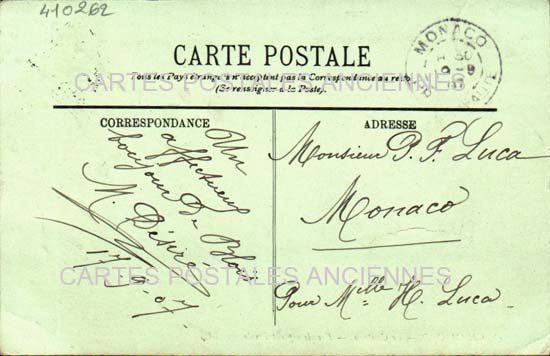 410262
CARTE POSTALE
Tous les Pays étrangers n'acceptent pas la Correspondance au recto.
(Se renseigner à la Poste).
CARTES POSTALES ANCIENNES
MONACO
CORRESPONDANCE
Un
affectueux
bonjour De
M. Désiré
17 9 07
ADRESSE
Monsieur P. F. Luca
Monaco
Pour Mlle H. Luca
CARTES POSTALES ANCIENNES